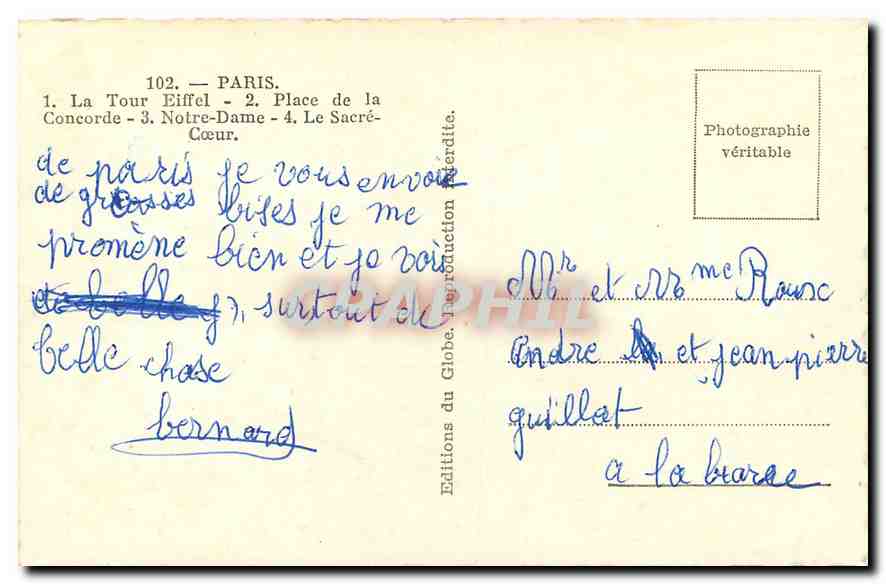 102. — PARIS.
1. La Tour Eiffel - 2. Place de la
Concorde - 3. Notre-Dame - 4. Le Sacré-
Cœur.
de paris je vous envoie
de grosses bises je me
promène bien et je vois
surtout de
belle chose
bernard
Editions du Globe. Reproduction interdite.
Photographie
véritable
Mr et Mme
Andre et jean pierre
guillot
a la
CPAPHIL